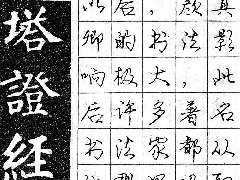 塔證経
以后，颜真
卿的书法影
响极大，此
后许多著名
书法家都从